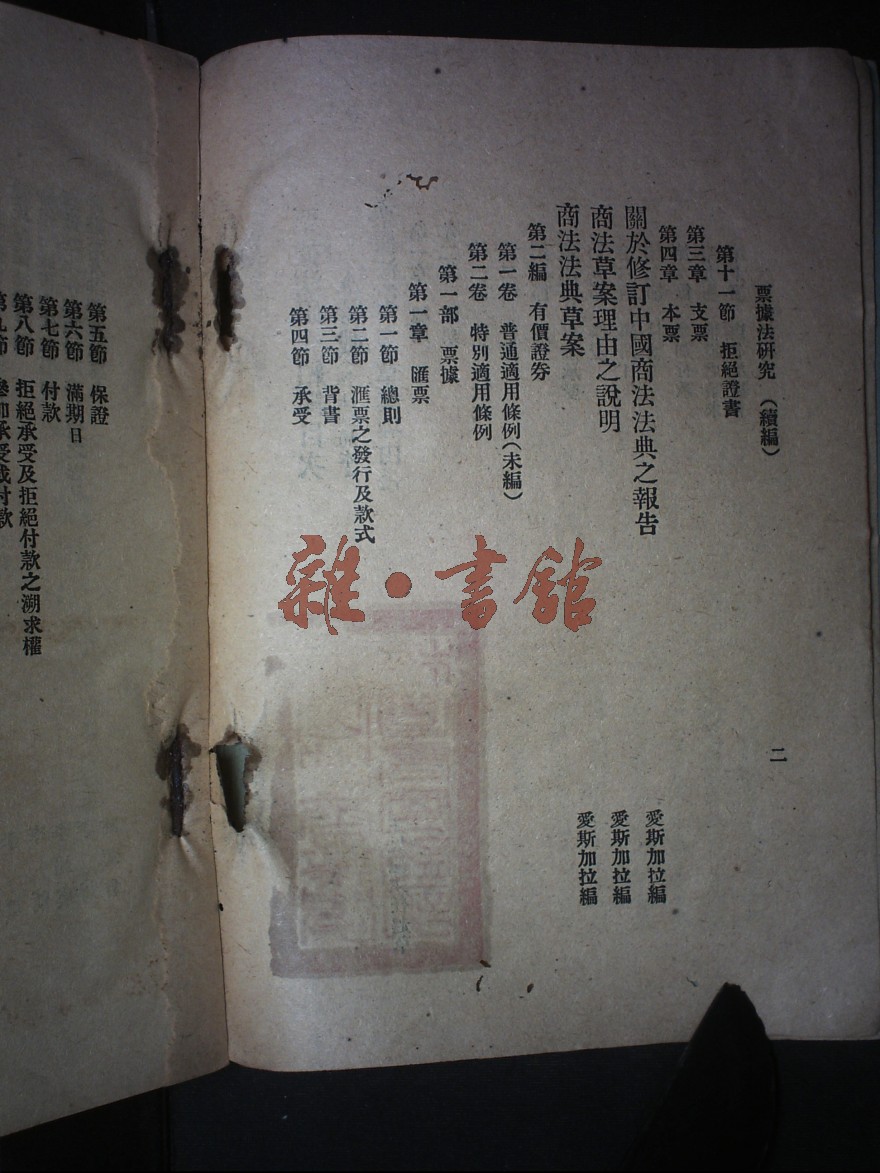 票據法研究 (續編)
二
第十一節 拒絕證書
第三章 支票
第四章 本票
關於修訂中國商法法典之報告 愛斯加拉編
商法草案理由之說明 愛斯加拉編
商法法典草案 愛斯加拉編
第二編 有價證券
第一卷 普通適用條例(未編)
第二卷 特別適用條例
第一部 票據
第一章 匯票
第一節 總則
第二節 滙票之發行及款式
第三節 背書
第四節 承受
第五節 保證
第六節 滿期日
第七節 付款
第八節 拒絕承受及拒絕付款之溯求權
第九節 參加承受或付款
雜·書館